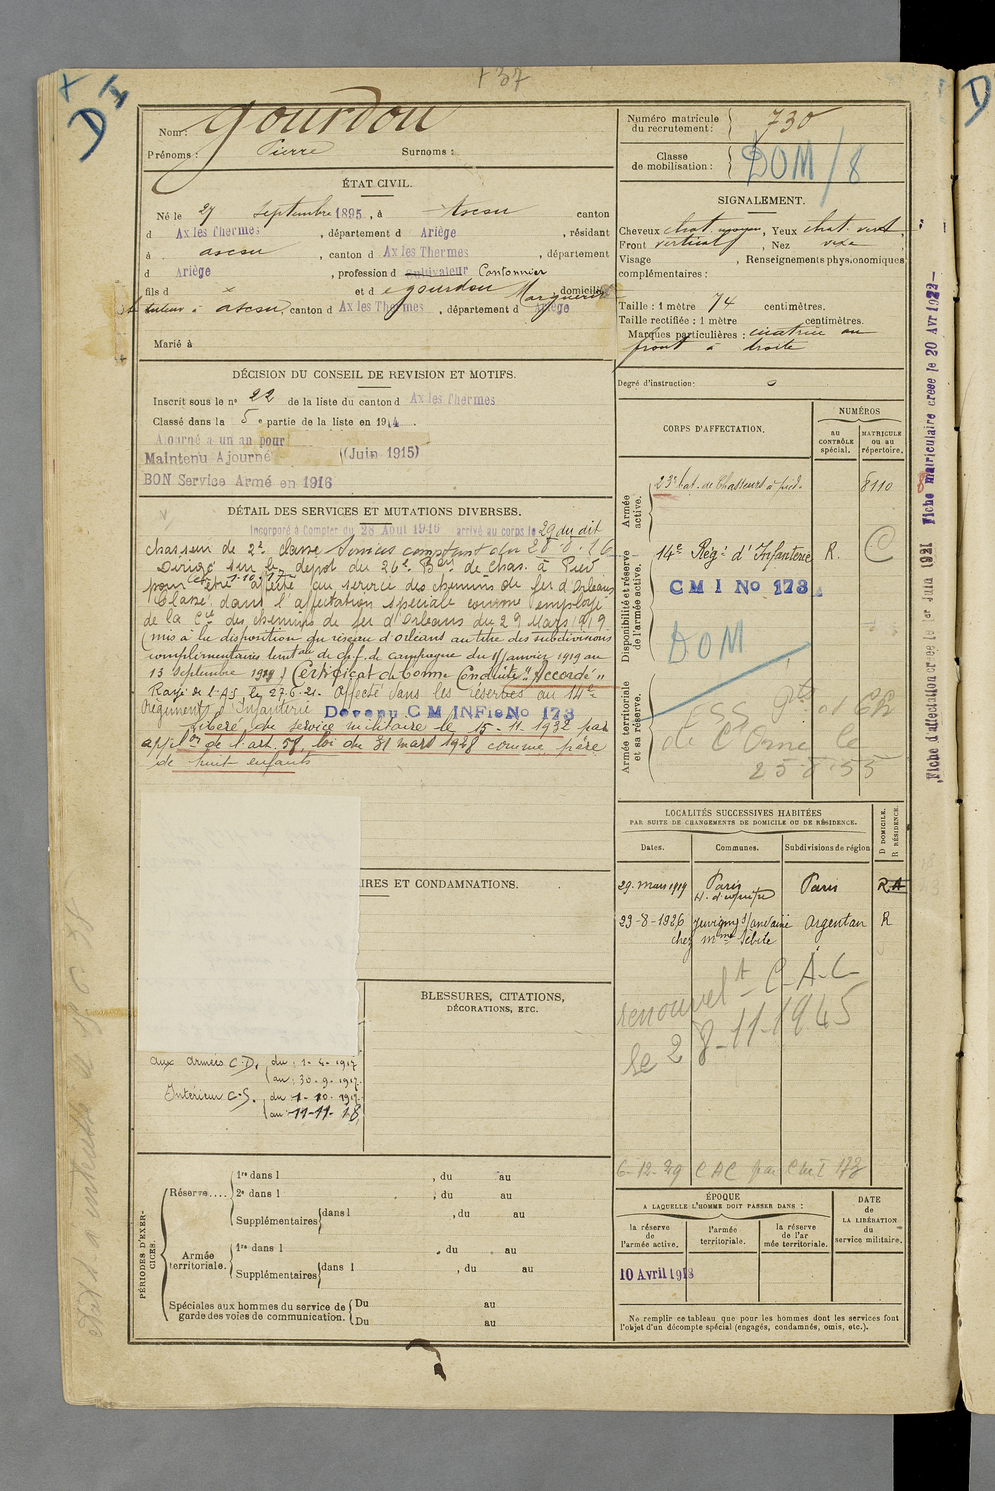 + 37
D I
Nom : Gourdou
Prénoms : Pierre Surnoms :
Numéro matricule du recrutement : 730
Classe de mobilisation : DOM / 8
ÉTAT CIVIL.
Né le 27 Septembre 1895, à Ascou canton
d Ax les Thermes, département d Ariège, résidant
à Ascou, canton d Ax les Thermes, département
d Ariège, profession d Cultivateur Cantonnier
fils d x et d e Gourdou Marguerite domiciliés
à Ascou, canton d Ax les Thermes, département d Ariège
Marié à
SIGNALEMENT.
Cheveux chat. moyen, Yeux chat. vert
Front vertical, Nez vexe
Visage , Renseignements physionomiques
complémentaires :
Taille : 1 mètre 74 centimètres.
Taille rectifiée : 1 mètre centimètres.
Marques particulières : cicatrice au
front à droite
Degré d'instruction : 0
DÉCISION DU CONSEIL DE REVISION ET MOTIFS.
Inscrit sous le n° 22 de la liste du canton d Ax les Thermes
Classé dans la 5 e partie de la liste en 1914.
Ajourné à un an pour
Maintenu Ajourné (Juin 1915)
BON Service Armé en 1916
DÉTAIL DES SERVICES ET MUTATIONS DIVERSES.
Incorporé à Compter du 28 Août 1916 arrivé au corps le 29 du dit
chasseur de 2e classe comptant du 28-8-16
Dirigé sur le dépot du 26e Bon de Chas. à Pied
pour être affecté au service des chemins de fer d'Orléans
Classé dans l'affectation spéciale comme employé
de la Cie des chemins de fer d'Orléans du 29 Mars 1919.
(mis à la disposition du réseau d'Orléans au titre des subdivisions
complémentaires territales de ch. f. de campagne du 1er janvier 1919 au
13 septembre 1919) Certificat de bonne Conduite "Accordé"
Rayé de l'A.S. le 27.6.21. Affecté dans les réserves au 14e
Régiment d'Infanterie Devenu C M INFie No 173
Libéré du service militaire le 15-11-1932 par
applon de l'art. 58, loi du 31 mars 1928 comme père
de huit enfants
CORPS D'AFFECTATION.
NUMÉROS
au CONTRÔLE spécial.
MATRICULE ou au répertoire.
Armée active.
23e bat. de Chasseurs à pied. 8110
Disponibilité et réserve de l'armée active.
14e Régt d'Infanterie R.
C M I No 173
DOM
Armée territoriale et sa réserve.
de Ct Orne le
25.8.55
Fiche d'affectation créée le 1er Juin 1921 Fiche matriculaire créée le 20 Avr 1922
LOCALITÉS SUCCESSIVES HABITÉES
PAR SUITE DE CHANGEMENTS DE DOMICILE OU DE RÉSIDENCE.
D DOMICILE. R RÉSIDENCE.
Dates. Communes. Subdivisions de région
29. Mars 1919 Paris Paris R.A
23-8-1926 Juvigny s/ Andaine Argentan R
chez Mme Sébile
renouvelt C.A.C
le 28-11-1945
6-12-29 C A C par C M I 173
IRES ET CONDAMNATIONS.
BLESSURES, CITATIONS,
DÉCORATIONS, ETC.
aux armées C.D. du 1-4-1917
au 30-9-1917.
Intérieur C-S. du 1-10-1917
au 11-11-18
PÉRIODES D'EXERCICES.
Réserve.... 1re dans l , du au
2e dans l , du au
Supplémentaires dans l , du au
Armée territoriale. 1re dans l , du au
Supplémentaires dans l , du au
Spéciales aux hommes du service de garde des voies de communication. Du au
Du au
ÉPOQUE
A LAQUELLE L'HOMME DOIT PASSER DANS :
DATE de LA LIBÉRATION du service militaire.
la réserve de l'armée active.
l'armée territoriale.
la réserve de l'armée territoriale.
10 Avril 1918
Ne remplir ce tableau que pour les hommes dont les services font
l'objet d'un décompte spécial (engagés, condamnés, omis, etc.).
D